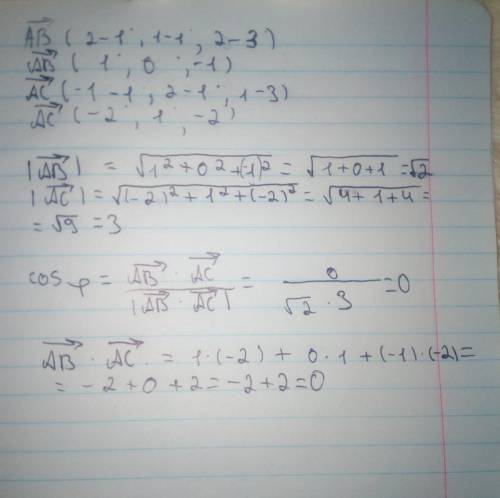 AB→ ( 2-1 ; 1-1 ; 2-3 )
AB→ ( 1 ; 0 ; -1 )
AC→ (-1 -1 ; 2-1 ; 1-3)
AC→ (-2 ; 1 ; -2)
|AB→| = √(1² + 0² + (-1)²) = √(1+0+1) = √2
|AC→| = √((-2)² + 1² + (-2)²) = √(4+1+4) =
= √9 = 3
cos φ = (AB→ · AC→)/|AB→ · AC→| = 0/(√2 · 3) = 0
AB→ · AC→ = 1·(-2) + 0·1 + (-1)·(-2) =
= -2+0+2 = -2+2 = 0